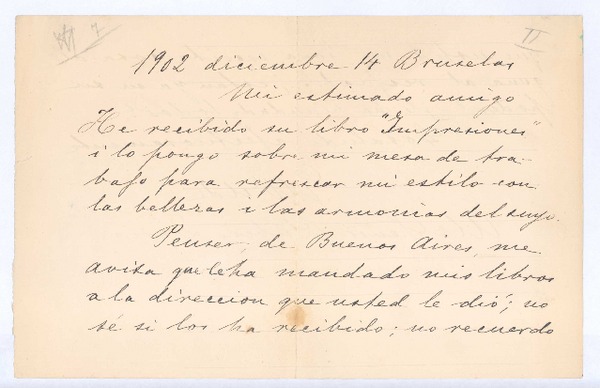 7
II
1902 diciembre 14 Bruselas
Mi estimado amigo
He recibido su libro "Impresiones"
i lo pongo sobre mi mesa de tra-
bajo para refrescar mi estilo con
las bellezas i las armonias del suyo.
Peuser, de Buenos Aires, me
avisa que le ha mandado mis libros
a la direccion que usted le dió; no
sé si los ha recibido; no recuerdo